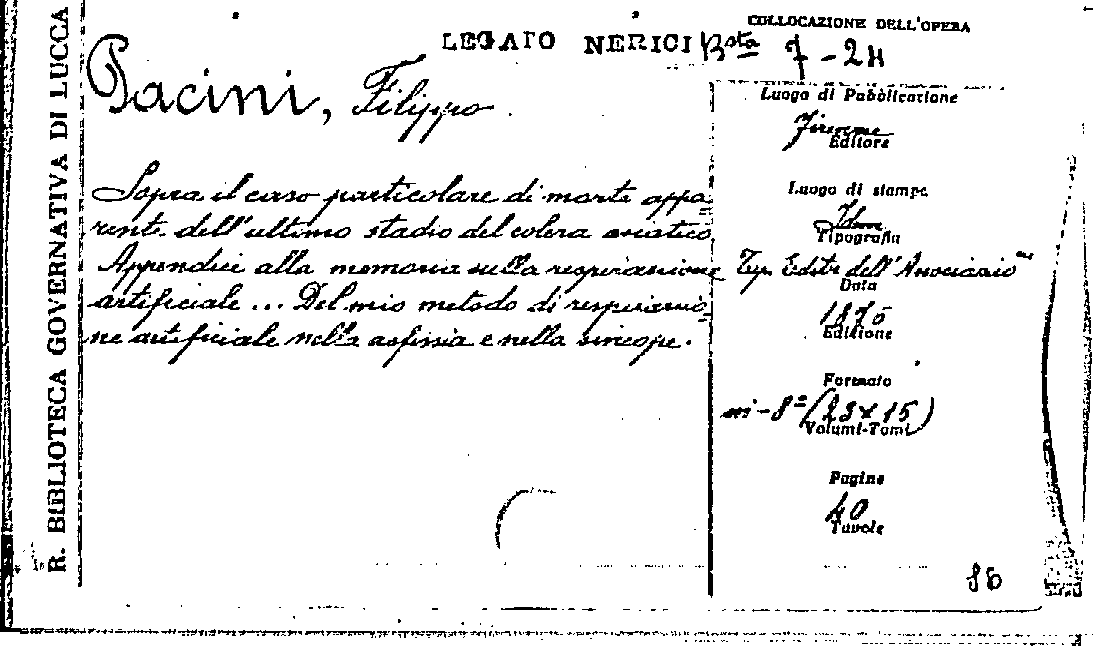 R. BIBLIOTECA GOVERNATIVA DI LUCCA
LEGATO NERICI
COLLOCAZIONE DELL'OPERA
Bsta 7-24
Pacini, Filippo
Sopra il caso particolare di morte appa=
rente dell'ultimo stadio del colera asiatico
Appendici alla memoria sulla respirazione
artificiale... Del mio metodo di respirazio=
ne artificiale nella asfissia e nella sincope.
Luogo di Pubblicazione
Firenze
Editore
Luogo di stampa
Idem
Tipografia
Tip. Editr. dell'Associazione
Data
1876
Edizione
Formato
in-8º (23x15)
Volumi-Tomi
Pagine
40
Tavole